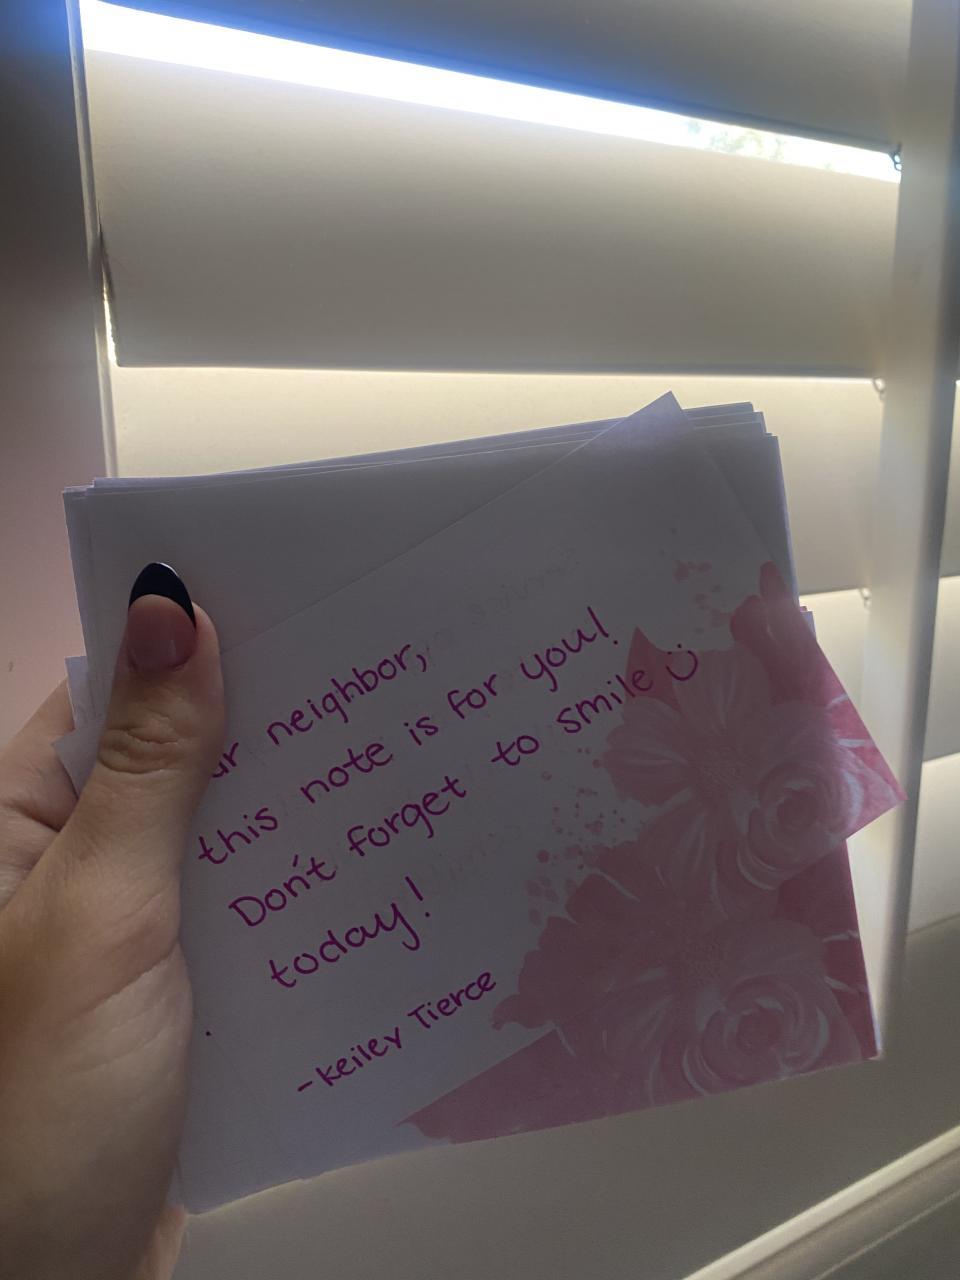 neighbor,
this note is for you!
Don't forget to smile
today!
-Keiley Tierce